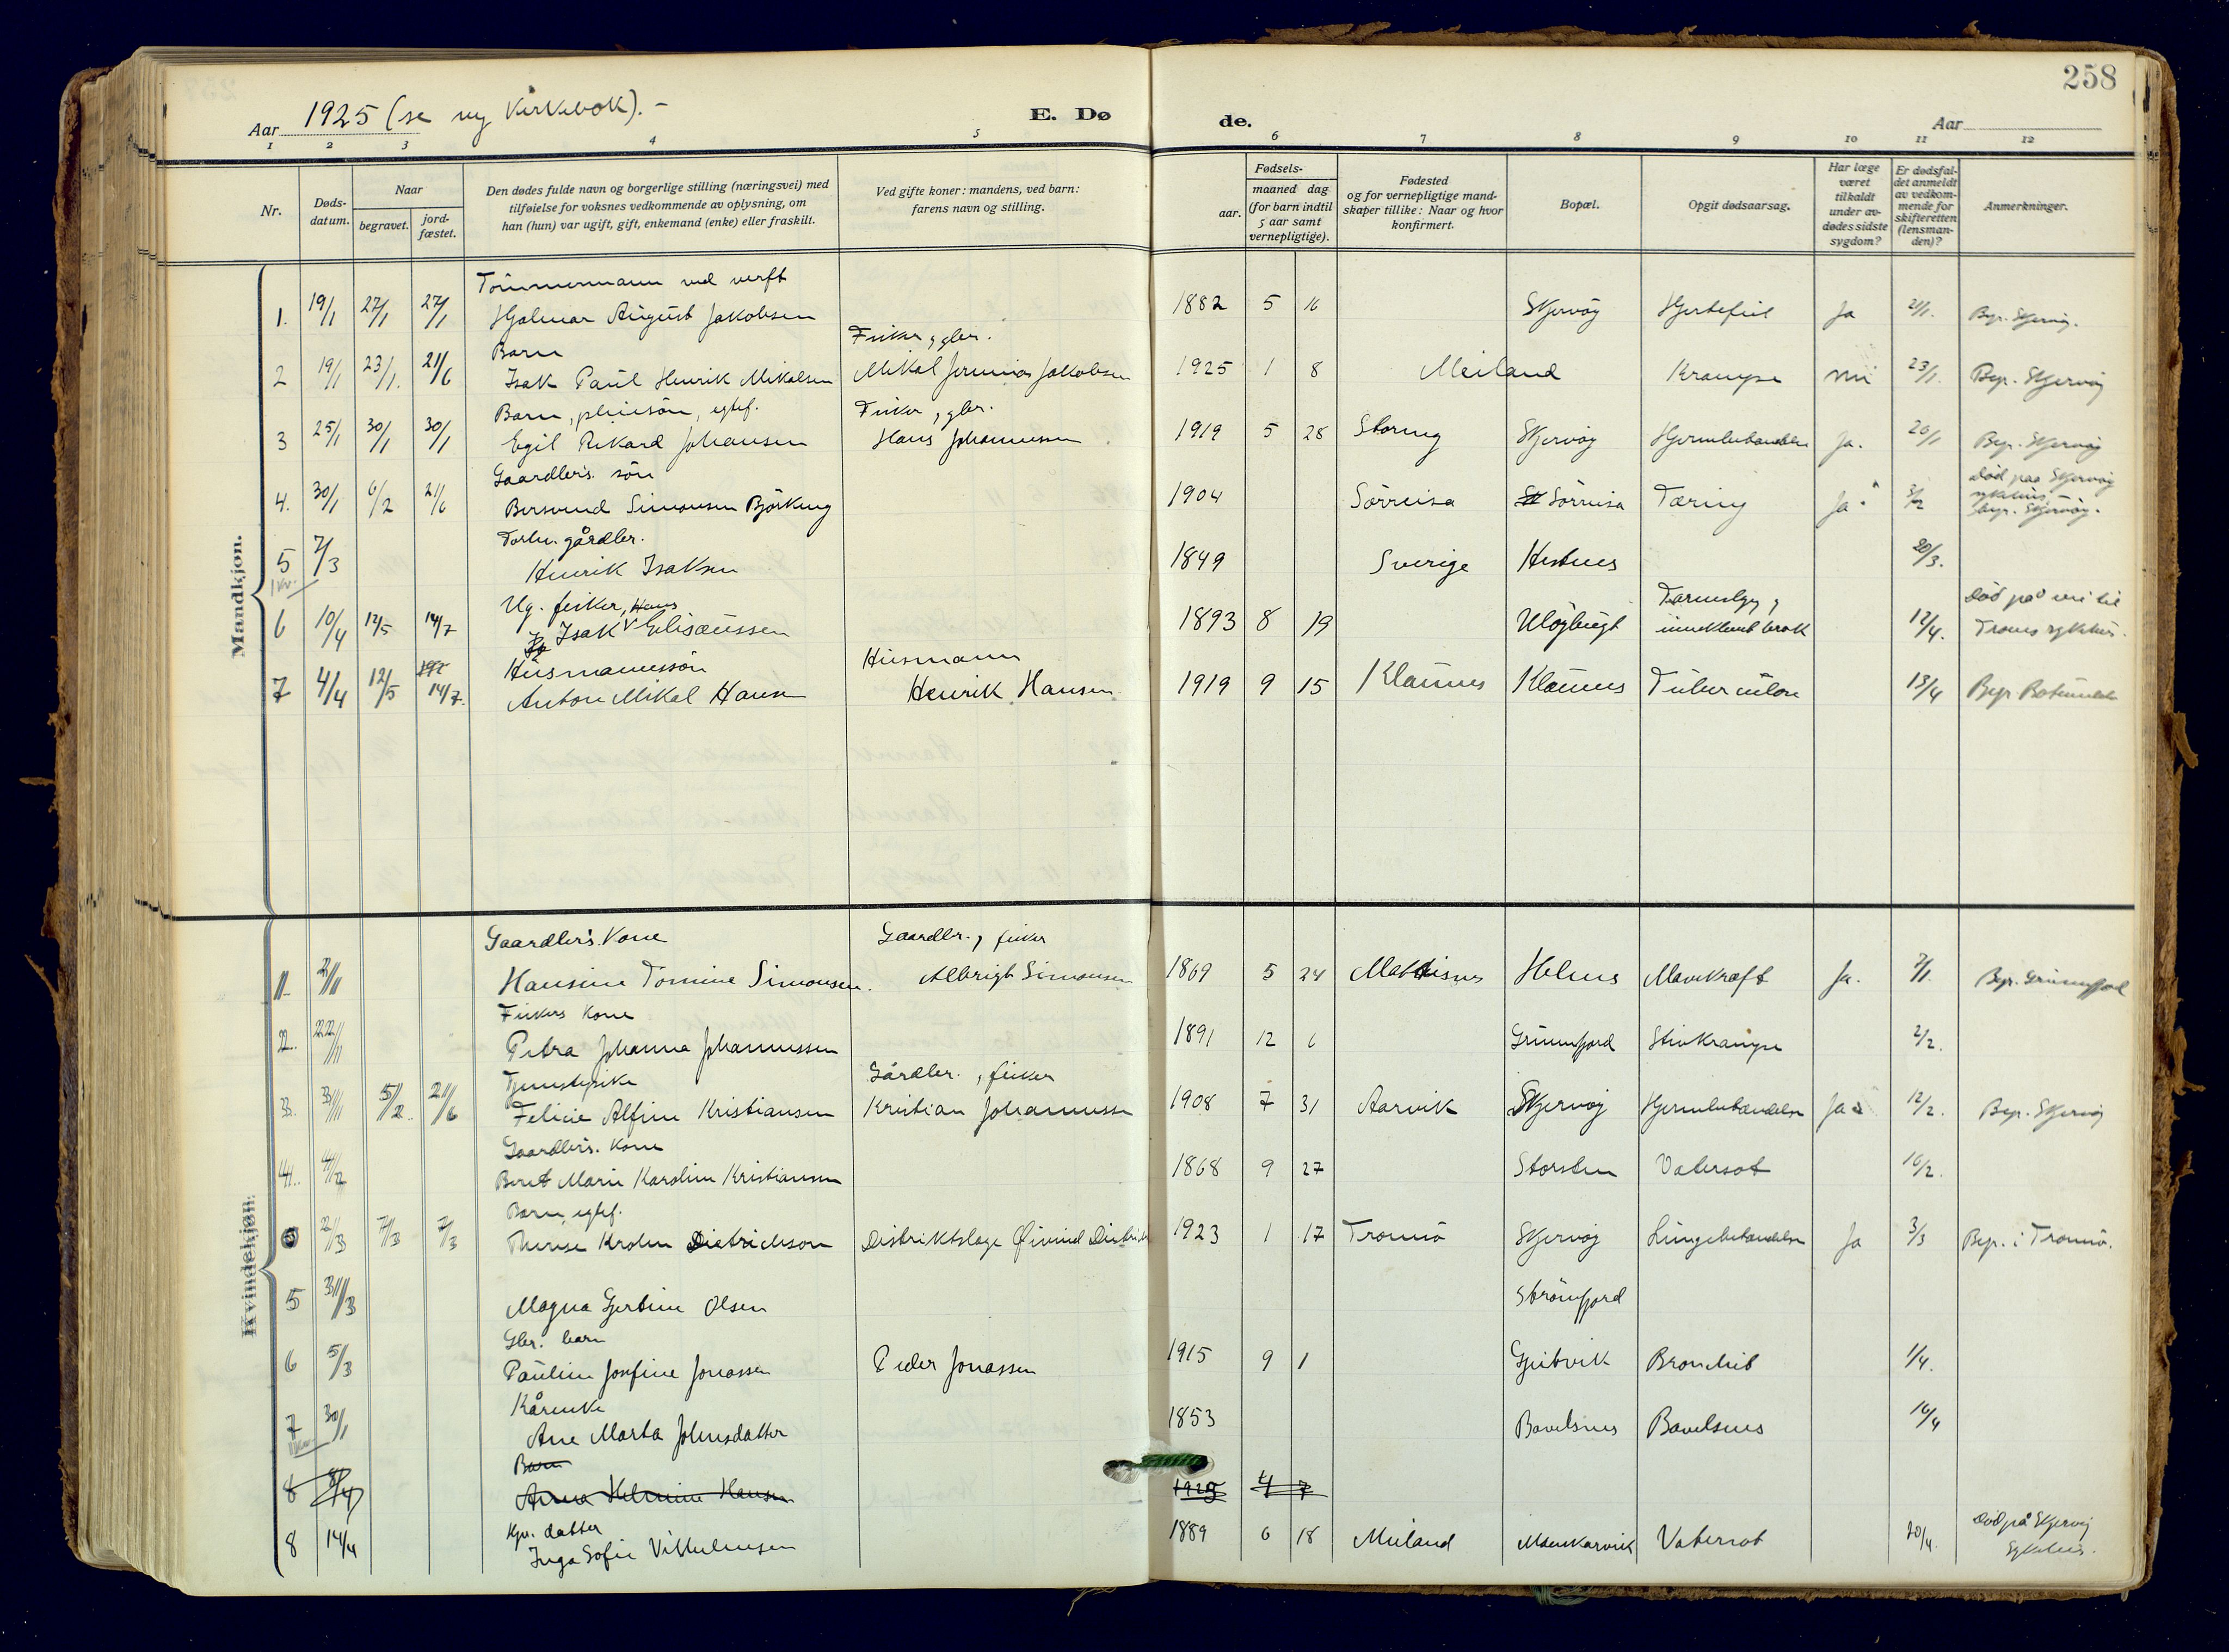 258
Aar 1925 (se ny Kirkebok). -
E. Døde.
Aar
1 2 3 4 5 6 7 8 9 10 11 12
Nr.
Døds-datum.
Naar
begravet.
jord-fæstet.
Den dødes fulde navn og borgerlige stilling (næringsvei) med
tilføielse for voksnes vedkommende av oplysning, om
han (hun) var ugift, gift, enkemand (enke) eller fraskilt.
Ved gifte koner: mandens, ved barn:
farens navn og stilling.
Fødsels-
aar.
maaned dag
(for barn indtil
5 aar samt
vernepligtige).
Fødested
og for vernepligtige mand-
skaper tillike: Naar og hvor
konfirmert.
Bopæl.
Opgit dødsaarsag.
Har læge
været
tilkaldt
under av-
dødes sidste
sygdom?
Er dødsfal-
det anmeldt
av vedkom-
mende for
skifteretten
(lensman-
den)?
Anmerkninger.
Mandkjøn.
Tömmermann ved verft
1. 19/1 27/1 27/1 Hjalmar August Jakobsen 1882 5 16 Skjervöy Hjertefeil Ja 21/1. Bgr. Skjervöy.
Barn Fisker, gbr.
2 19/1 23/1. 21/6 Isak Paul Henrik Mikalsen Mikal Jakobsen 1925 1 8 Meiland Krampe nei 23/1. Bgr. Skjervöy
Barn, pleiesön, egtef. Fisker, gbr.
3 25/1 30/1 30/1 Egil Rikard Johansen Hans Johannessen 1919 5 28 Skjervöy Hjernebetændelse Ja. 26/1 Bgr. Skjervöy
Gaardbr's. sön Död paa Skjervöy
4. 30/1 6/2 21/6 Simonsen Björkeng 1904 Sörreisa Sörreisa Tæring Ja 3/2 sykehus, bgr. Skjervöy.
gårdbr.
5 7/3 Henrik Isaksen 1849 Sverige Hestnes 20/3.
Ug. fisker, Hans Tarmslyng, Död på vei til
6 10/4 12/5 14/7 Isak Elisæussen 1893 8 19 Ulöybugt inneklemt brok 12/4. Troms sykehus.
Husmannssön Husmann
7 4/4 12/5 14/7. Anton Mikal Hansen Henrik Hansen 1919 9 15 Klaunes Klaunes Tuberculose 13/4 Bgr.
Kvindekjøn.
Gaardbr's. Kone Gaardbr., fisker
1. Hansine Tomine Simonsen. Albrigt Simonsen 1869 5 24 Helnes Mavekræft Ja. Bgr. Grunnfjord
Fiskers Kone
2. Petra Johanna Johannessen 1891 12 6 Grunnfjord Stivkrampe 2/2.
Tjenestepike Gårdbr., fisker
3. 5/2. 21/6 Felicie Alfine Kristiansen Kristian Johannessen 1908 7 31 Aarvik Skjervöy Hjernebetændelse Ja 12/2. Bgr. Skjervöy
Gaardbr's. Kone
4. Berit Marie Karoline Kristiansen 1868 9 27 Storsten Vatersot 16/2.
Barn, egtef.
2/3 7/3 7/3 Therese Krohn Dietrichson Distriktslæge Øivind 1923 1 17 Tromsö Skjervöy Lungebetændelse Ja 3/3 Bgr. i Tromsö.
5 Magna Gjertine Olsen Strömfjord
Gbr. barn
6 5/3 Pauline Josefine Jonassen Peder Jonassen 1915 9 1 Geitvik Bronchit 1/4.
Kårenke
7 30/1 Ane Marta Johnsdatter 1853 Bavelsnes Bavelsnes 16/4
Barn
8 8/4 Anna Helmine Hansen 1925 4 7
datter Död på Skjervöy
8 14/4 Inga Sofie Vilhelmsen 1889 6 18 Meiland Maurkarvik Vatersot 20/4. Sykehus.